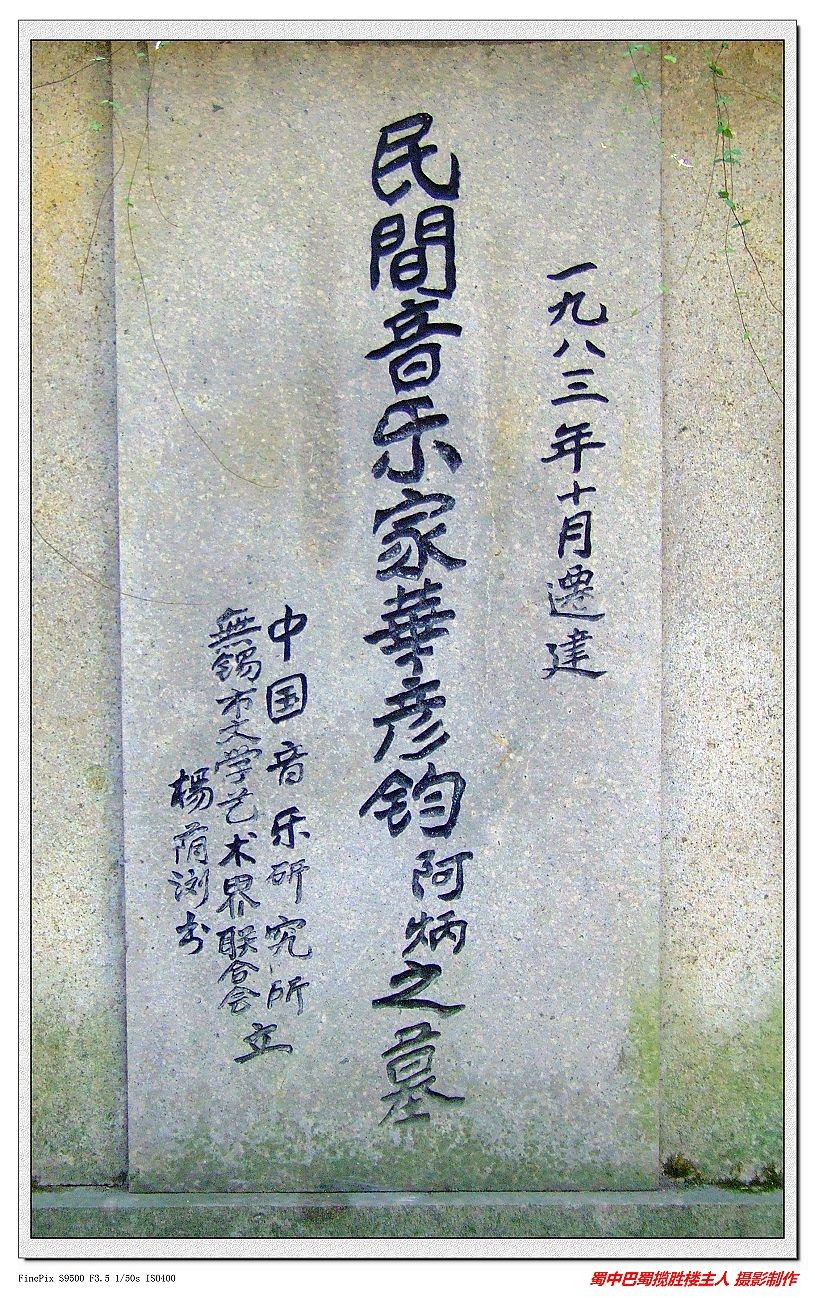 一九八三年十月遷建
民間音乐家華彦钧阿炳之墓
中国音乐研究所
無锡市文学艺术界联合会
立
楊荫浏书
FinePix S9500 F3.5 1/50s ISO400
蜀中巴蜀揽胜楼主人 摄影制作